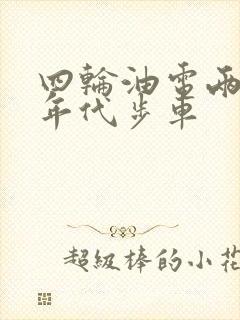 四輪油電兩
年代步車
超級棒的小花